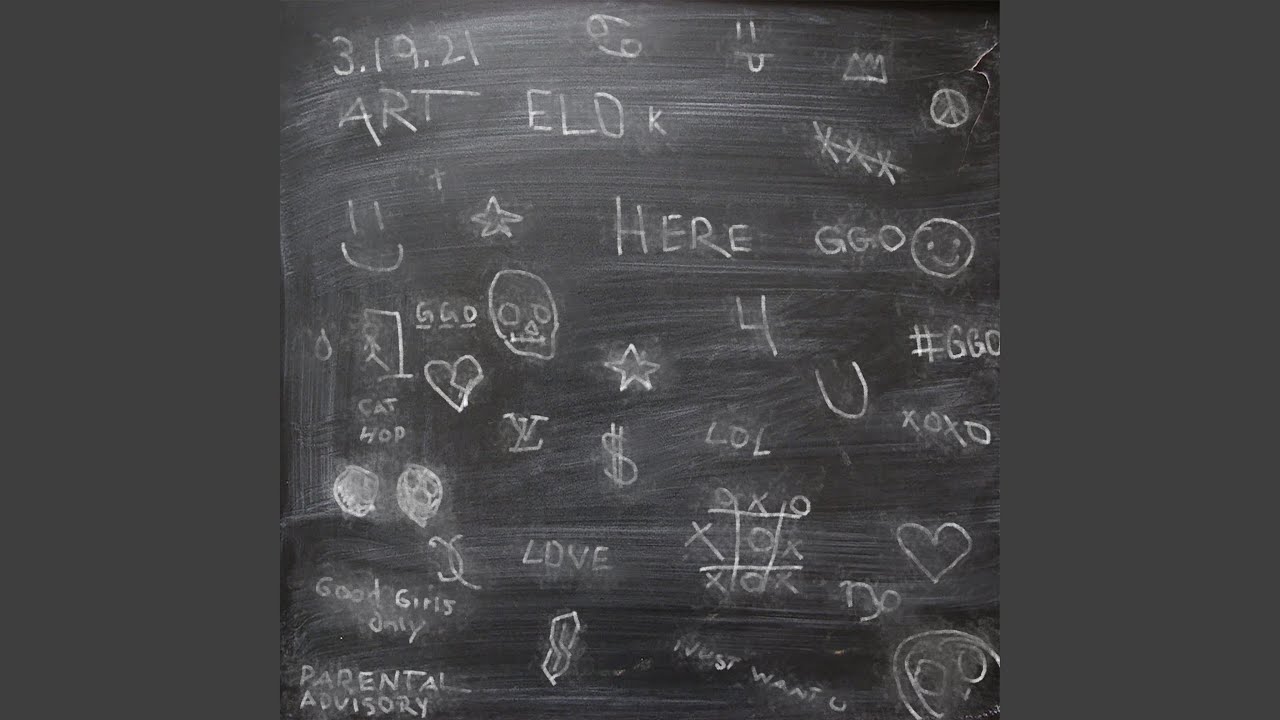 3.19.21
ART ELOK
HERE
GGO
GGO
4
#GGO
U
CAT
HOP
LV
$
LOL
XOXO
O X O
X O X
X O X
LOVE
Good Girls
Only
I JUST WANT U
PARENTAL
ADVISORY